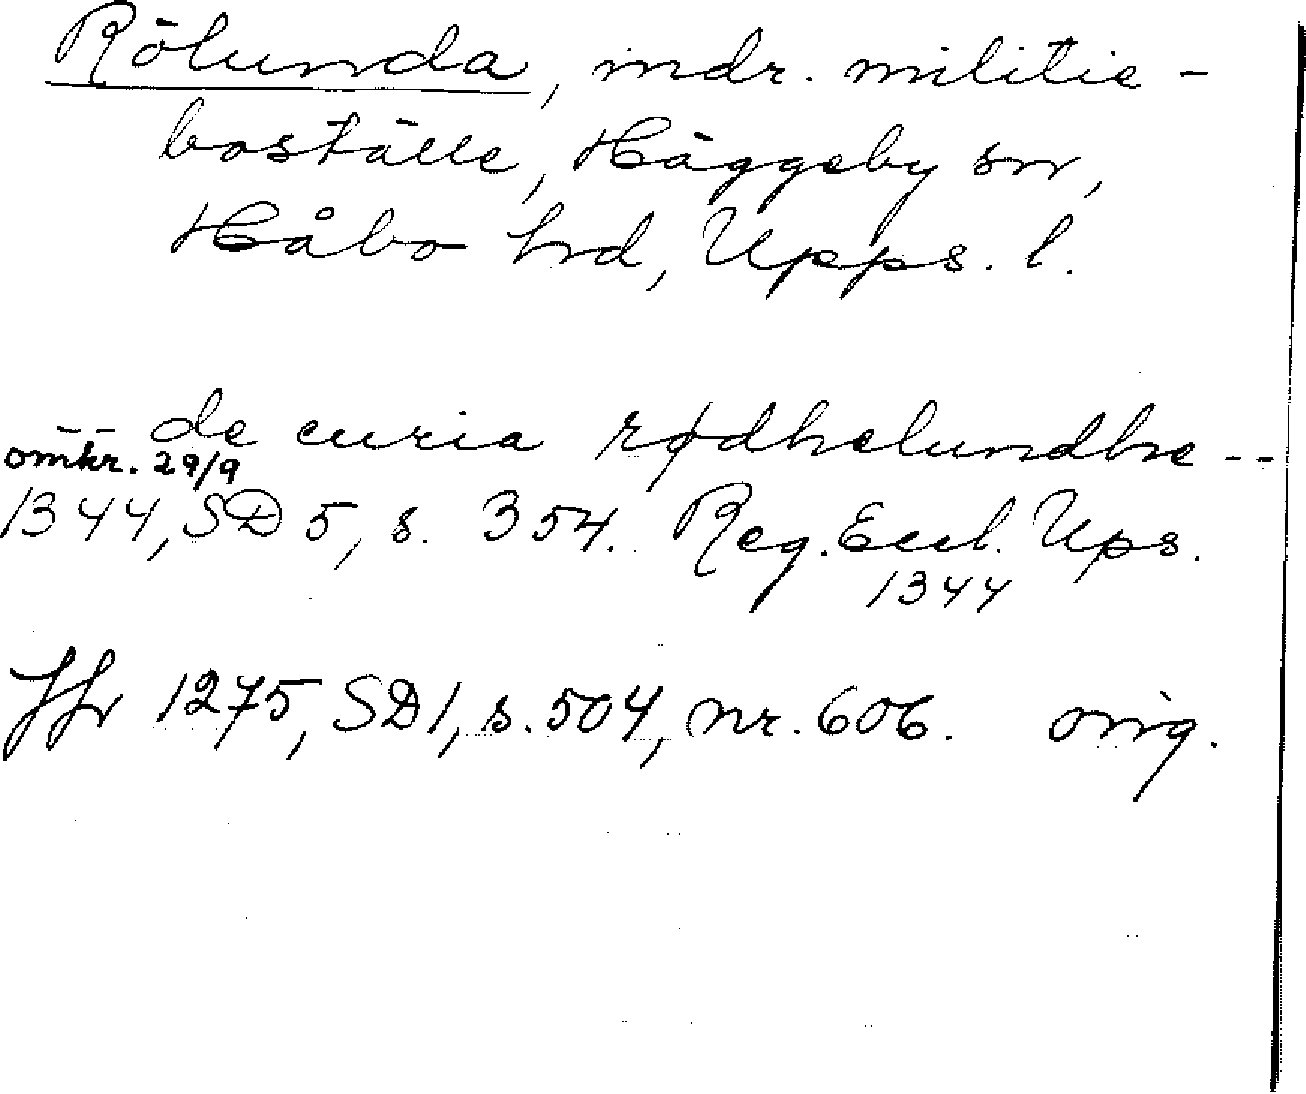 Rölunda, indr. militie-
boställe, Häggeby sn,
Håbo hd, Upps. l.
-- de curia rødhelundhe --
omkr. 29/9
1344, SD 5, s. 354. Reg. Eccl. Ups.
1344
Jfr 1275, SD 1, s. 504, nr. 606. orig.